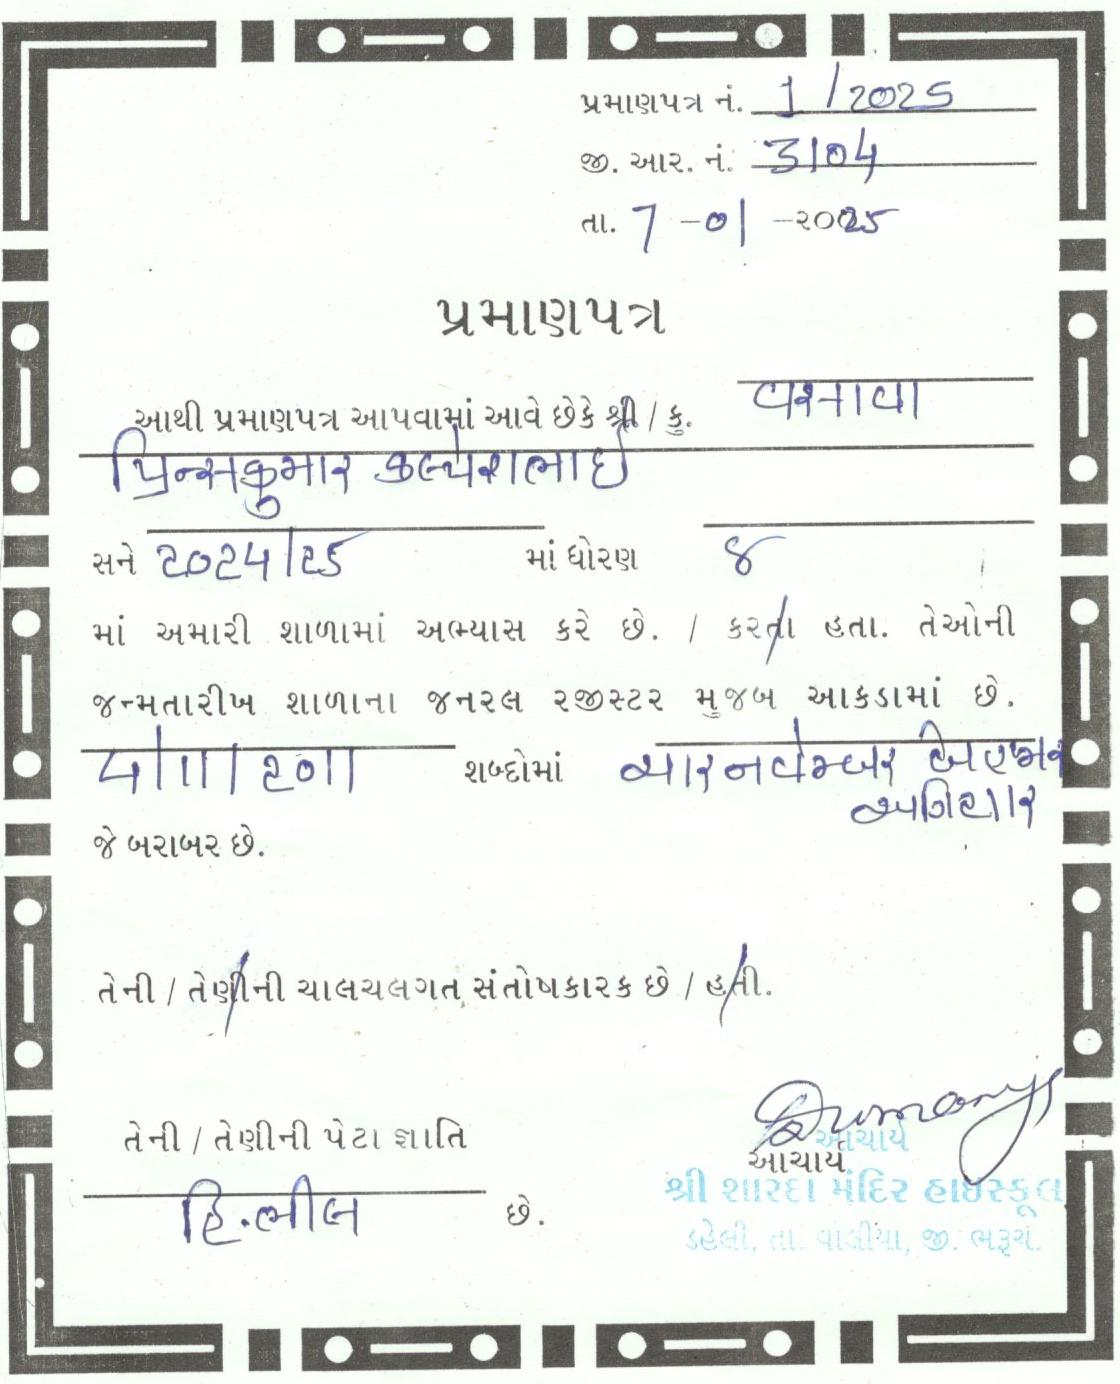 પ્રમાણપત્ર નં. 1/2025
જી. આર. નં. 3104
તા. 7-01-૨૦25
પ્રમાણપત્ર
આથી પ્રમાણપત્ર આપવામાં આવે છેકે શ્રી / કુ. વસાવા
પ્રિન્સકુમાર કલ્પેશભાઈ
સને ૨૦24/૨5 માં ધોરણ ૪
માં અમારી શાળામાં અભ્યાસ કરે છે. / કરતા હતા. તેઓની
જન્મતારીખ શાળાના જનરલ રજીસ્ટર મુજબ આકડામાં છે.
4/11/૨૦11 શબ્દોમાં ચાર નવેમ્બર બેહજાર
અગિયાર
જે બરાબર છે.
તેની / તેણીની ચાલચલગત સંતોષકારક છે / હતી.
તેની / તેણીની પેટા જ્ઞાતિ
આચાર્ય
આચાર્ય
શ્રી શારદા મંદિર હાઈસ્કૂલ
હિ.ભીલ છે.
ડહેલી, તા. વાલીયા, જી. ભરૂચ.